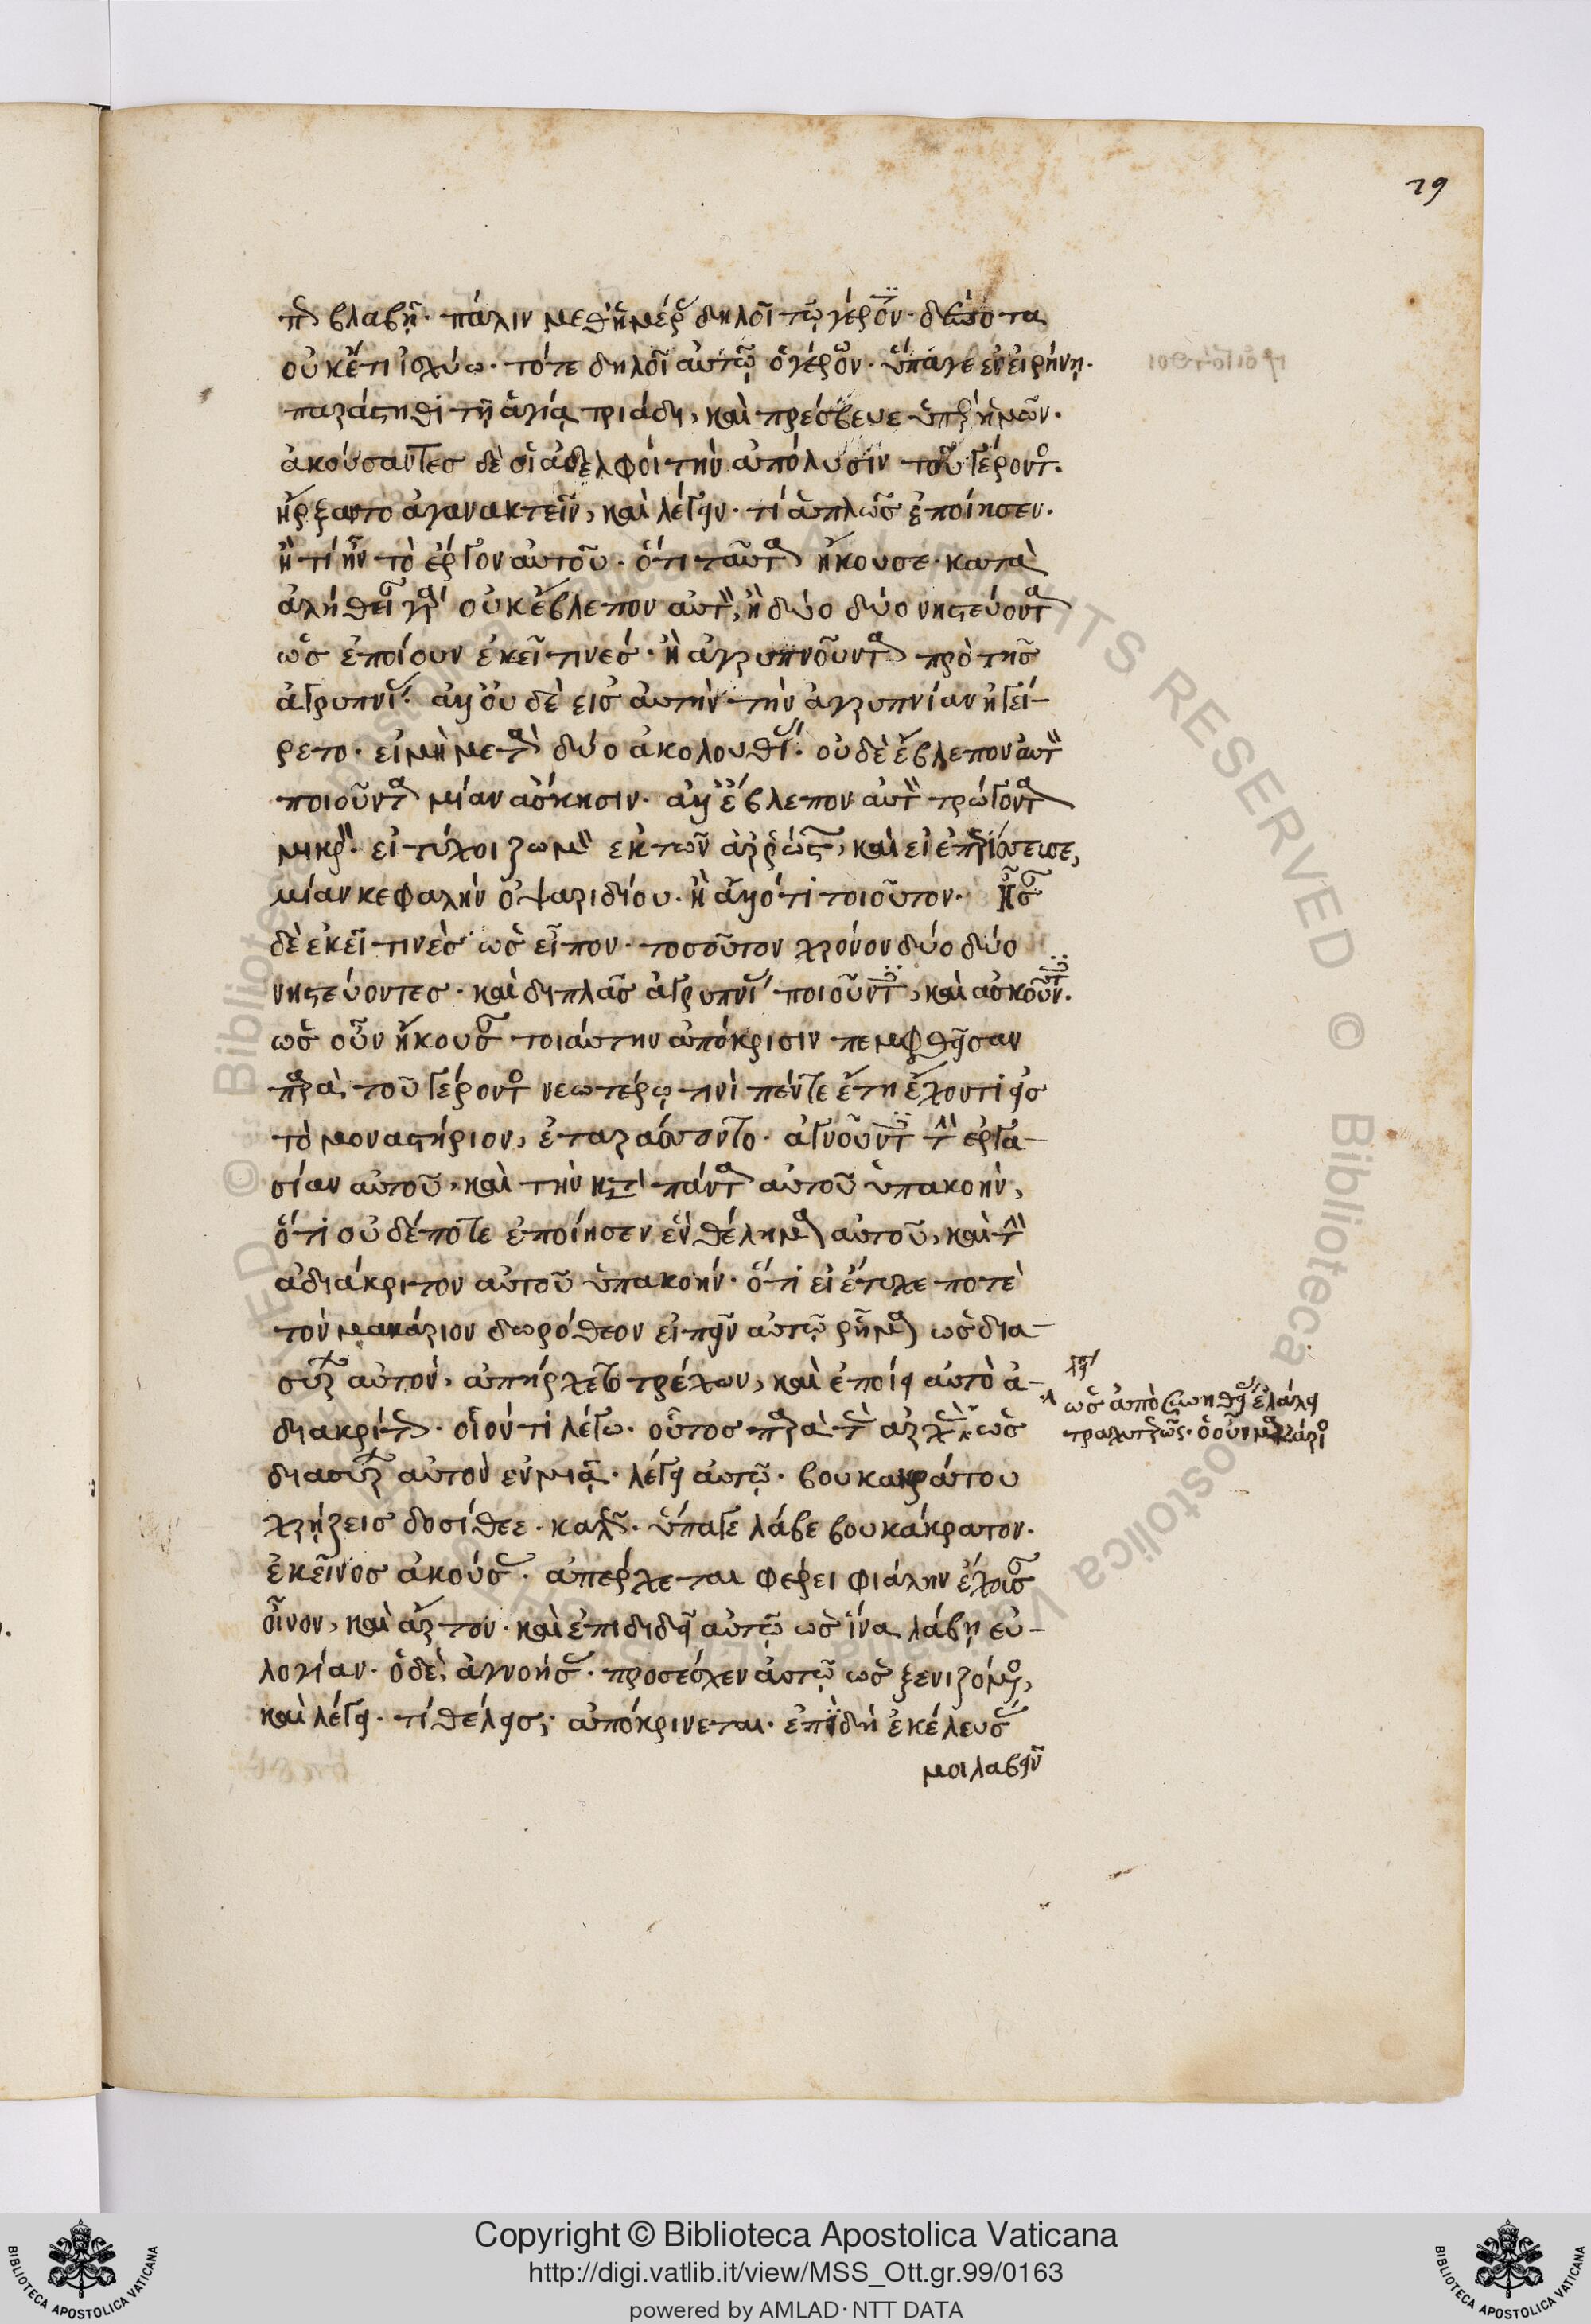 79
βλαβῇ. πάλιν μεθ' ἡμέρ δηλοῖ τῷ γέρον. δέσποτα
οὐκέτι ἰσχύω. τότε δηλοῖ αὐτῷ ὁ γέρον. ὕπαγε ἐν εἰρήνῃ.
παράστηθι τῇ ἁγίᾳ τριάδι, καὶ πρέσβευε ὑπὲρ ἡμῶν.
ἀκούσαντες δὲ οἱ ἀδελφοὶ τὴν ἀπόλυσιν τοῦ γέροντ.
ἤρξαντο ἀγανακτεῖν, καὶ λέγειν. τί ἁπλῶς ἐποίησεν.
ἢ τί ἦν τὸ ἔργον αὐτοῦ. ὅτι ταῦτα ἤκουσε. κατὰ
ἀλήθειαν γὰρ οὐκ ἔβλεπον αὐτὸν, ἢ δύο δύο νηστεύοντα
ὡς ἐποίουν ἐκεῖ τινές. ἢ ἀγρυπνοῦντα πρὸ τῆς
ἀγρυπνίας. ἀλλ' οὐδὲ εἰς αὐτὴν τὴν ἀγρυπνίαν ἠγεί-
ρετο. εἰ μὴ μετὰ δύο ἀκολουθίας. οὐδὲ ἔβλεπον αὐτὸν
ποιοῦντα μίαν ἄσκησιν. ἀλλ' ἔβλεπον αὐτὸν τρώγοντα
μικρὸν. εἰ τύχοι ζωμὸν ἐκ τῶν ἀρρώστ, καὶ εἰ ἐπερίσσευσε,
μίαν κεφαλὴν ὀψαριδίου. ἢ ἄλλο τι τοιοῦτον. ἦσαν
δὲ ἐκεῖ τινὲς ὡς εἶπον. τοσοῦτον χρόνον δύο δύο
νηστεύοντες. καὶ διπλᾶς ἀγρυπνίας ποιοῦντες, καὶ ἀσκοῦντ.
ὡς οὖν ἤκουσαν τοιαύτην ἀπόκρισιν πεμφθεῖσαν
παρὰ τοῦ γέροντος νεωτέρῳ τινὶ πέντε ἔτη ἔχοντι εἰς
τὸ μοναστήριον, ἐταράσσοντο. ἀγνοοῦντες τὴν ἐργα-
σίαν αὐτοῦ, καὶ τὴν κατὰ πάντα αὐτοῦ ὑπακοὴν,
ὅτι οὐδέποτε ἐποίησεν ἓν θέλημα αὐτοῦ, καὶ τὴν
ἀδιάκριτον αὐτοῦ ὑπακοήν. ὅτι εἰ ἔτυχε ποτὲ
τὸν μακάριον δωρόθεον εἰπεῖν αὐτῷ ῥῆμα ὡς δια-
σύρ αὐτόν, ἀπήρχετο τρέχων, καὶ ἐποίει αὐτὸ ἀ-
διακρίτως. οἷόν τι λέγω. οὗτος παρὰ τὴν ἀρχὴν. ὡς
διασύρ αὐτὸν ἐν μιᾷ. λέγει αὐτῷ. βουκακράτου
χρῄζεις δοσίθεε. καλῶς. ὕπαγε λάβε βουκάκρατον.
ἐκεῖνος ἀκούσας. ἀπέρχεται φέρει φιάλην ἔχουσαν
οἶνον, καὶ ἄρτον. καὶ ἐπιδιδεῖ αὐτῷ ὡς ἵνα λάβῃ εὐ-
λογίαν. ὁ δὲ, ἀγνοήσας. προσέσχεν αὐτῷ ὡς ξενιζόμενος,
καὶ λέγει. τί θέλεις; ἀπόκρινεται. ἐπειδὴ ἐκέλευσας
μοι λαβεῖν
ὡς ἀπὸ συνηθείας ἐλάλει
τραχυτέρως. ὁ οὖν μακάριος
Copyright © Biblioteca Apostolica Vaticana
http://digi.vatlib.it/view/MSS_Ott.gr.99/0163
powered by AMLAD·NTT DATA
BIBLIOTECA APOSTOLICA VATICANA
BIBLIOTECA APOSTOLICA VATICANA